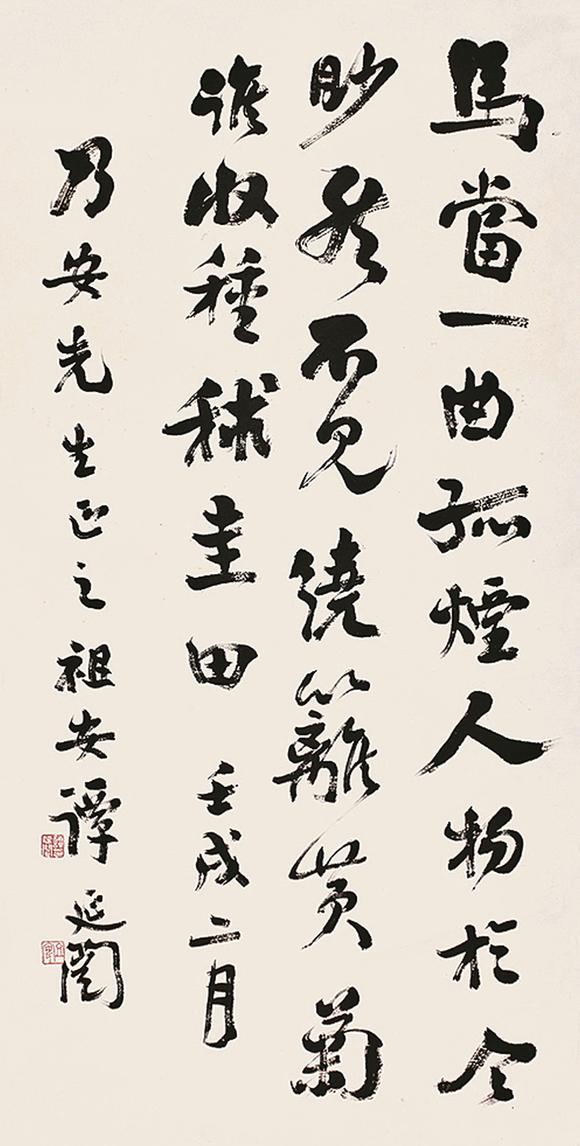 馬當一曲孤煙人物於今
眇然不見繞籬黄菊
誰收種秫圭田 壬戌二月
乃安先生正之祖安譚延闓